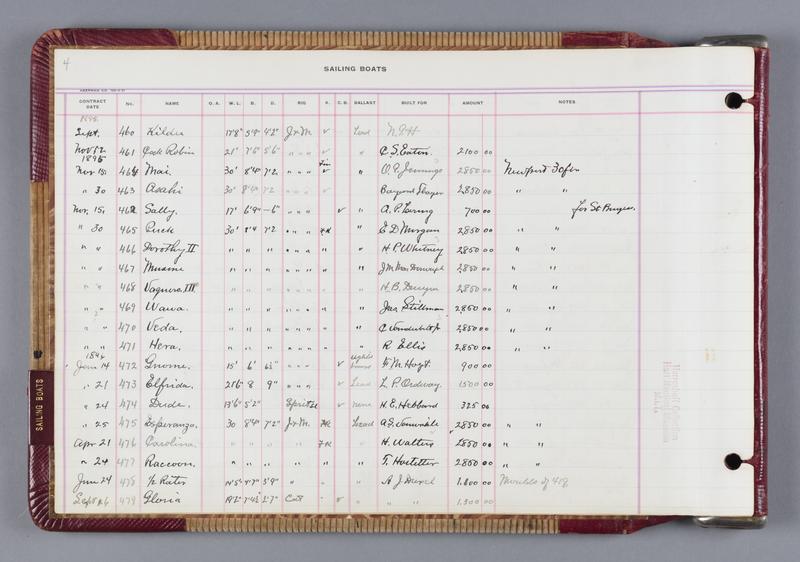 4
SAILING BOATS
CONTRACT DATE No. NAME O. A. W. L. B. D. RIG K. C. B. BALLAST BUILT FOR AMOUNT NOTES
1895
Sept. 460 Kildee 17'8" 5'9" 4'2" J & M. ✓ Lead N.G.H
Nov 12 461 Cock Robin 21' 7'6" 5'6" " " " ✓ " C. S. Eaton. 2100 00
1895 Fin
Nov 15, 464 Mai. 30' 8'4" 7'2 " " " ✓ " O. G. Jennings 2850 00 Newport 30 fin
" 30 463 Asahi 30' 8'4" 7'2 " " " Bayard Thayer 2,850 00 " "
Nov. 15, 462 Sally. 17' 6'9" —6" " " " ✓ " A. P. Loring 700 00 for St Buyer.
" 30 465 Puck 30' 8'4 7'2 " " " FK " E D Morgan 2,850 00 " "
" " 466 Dorothy II " " " " " " " " H. P. Whitney 2850 00 " "
" " 467 " " " " " " " " 2,850 00 " "
" " 468 Vaquero III " " " " " " " H. B. Duryea 2850 00 " "
" " 469 Wawa. " " " " " " " Jas Stillman 2850 00 " "
" " 470 Veda. " " " " " " " C Vanderbilt Jr 2850 00 " "
" " 471 Hera. " " " " " " " R Ellis 2,850 00 " "
1896
Jan 14 472 Gnome. 15' 6' 6½" " " " ✓ F. M. Hoyt. 900 00
" 21 473 Elfrida. 21'6" 8 9" " " " ✓ Lead L P. Ordway. 1500 00
" 24 474 Dude. 13'6" 5'2" Spritze ✓ none H. E. Hebbard 325 00
" 25 475 Esperanza. 30 8'4" 7'2" J & M. FK Lead A. S. Vanwinkle 2850 00 " "
Apr 21 476 Carolina. " " " " FK " H. Walters 2850 00 " "
" 24 477 Raccoon. " " " " " " " T. Hostetter 2850 00 " "
June 24 478 ½ Rater 14'5" 4'7" 3'9" " " " A J Drexel 1,800 00 Moulds of 419
Sept 26 479 Gloria 19'2" 7'4½ 2'7" Cat ✓ " " " 1,300 00
SAILING BOATS
Herreshoff Collection
Hart Nautical Museum
M.I.T.